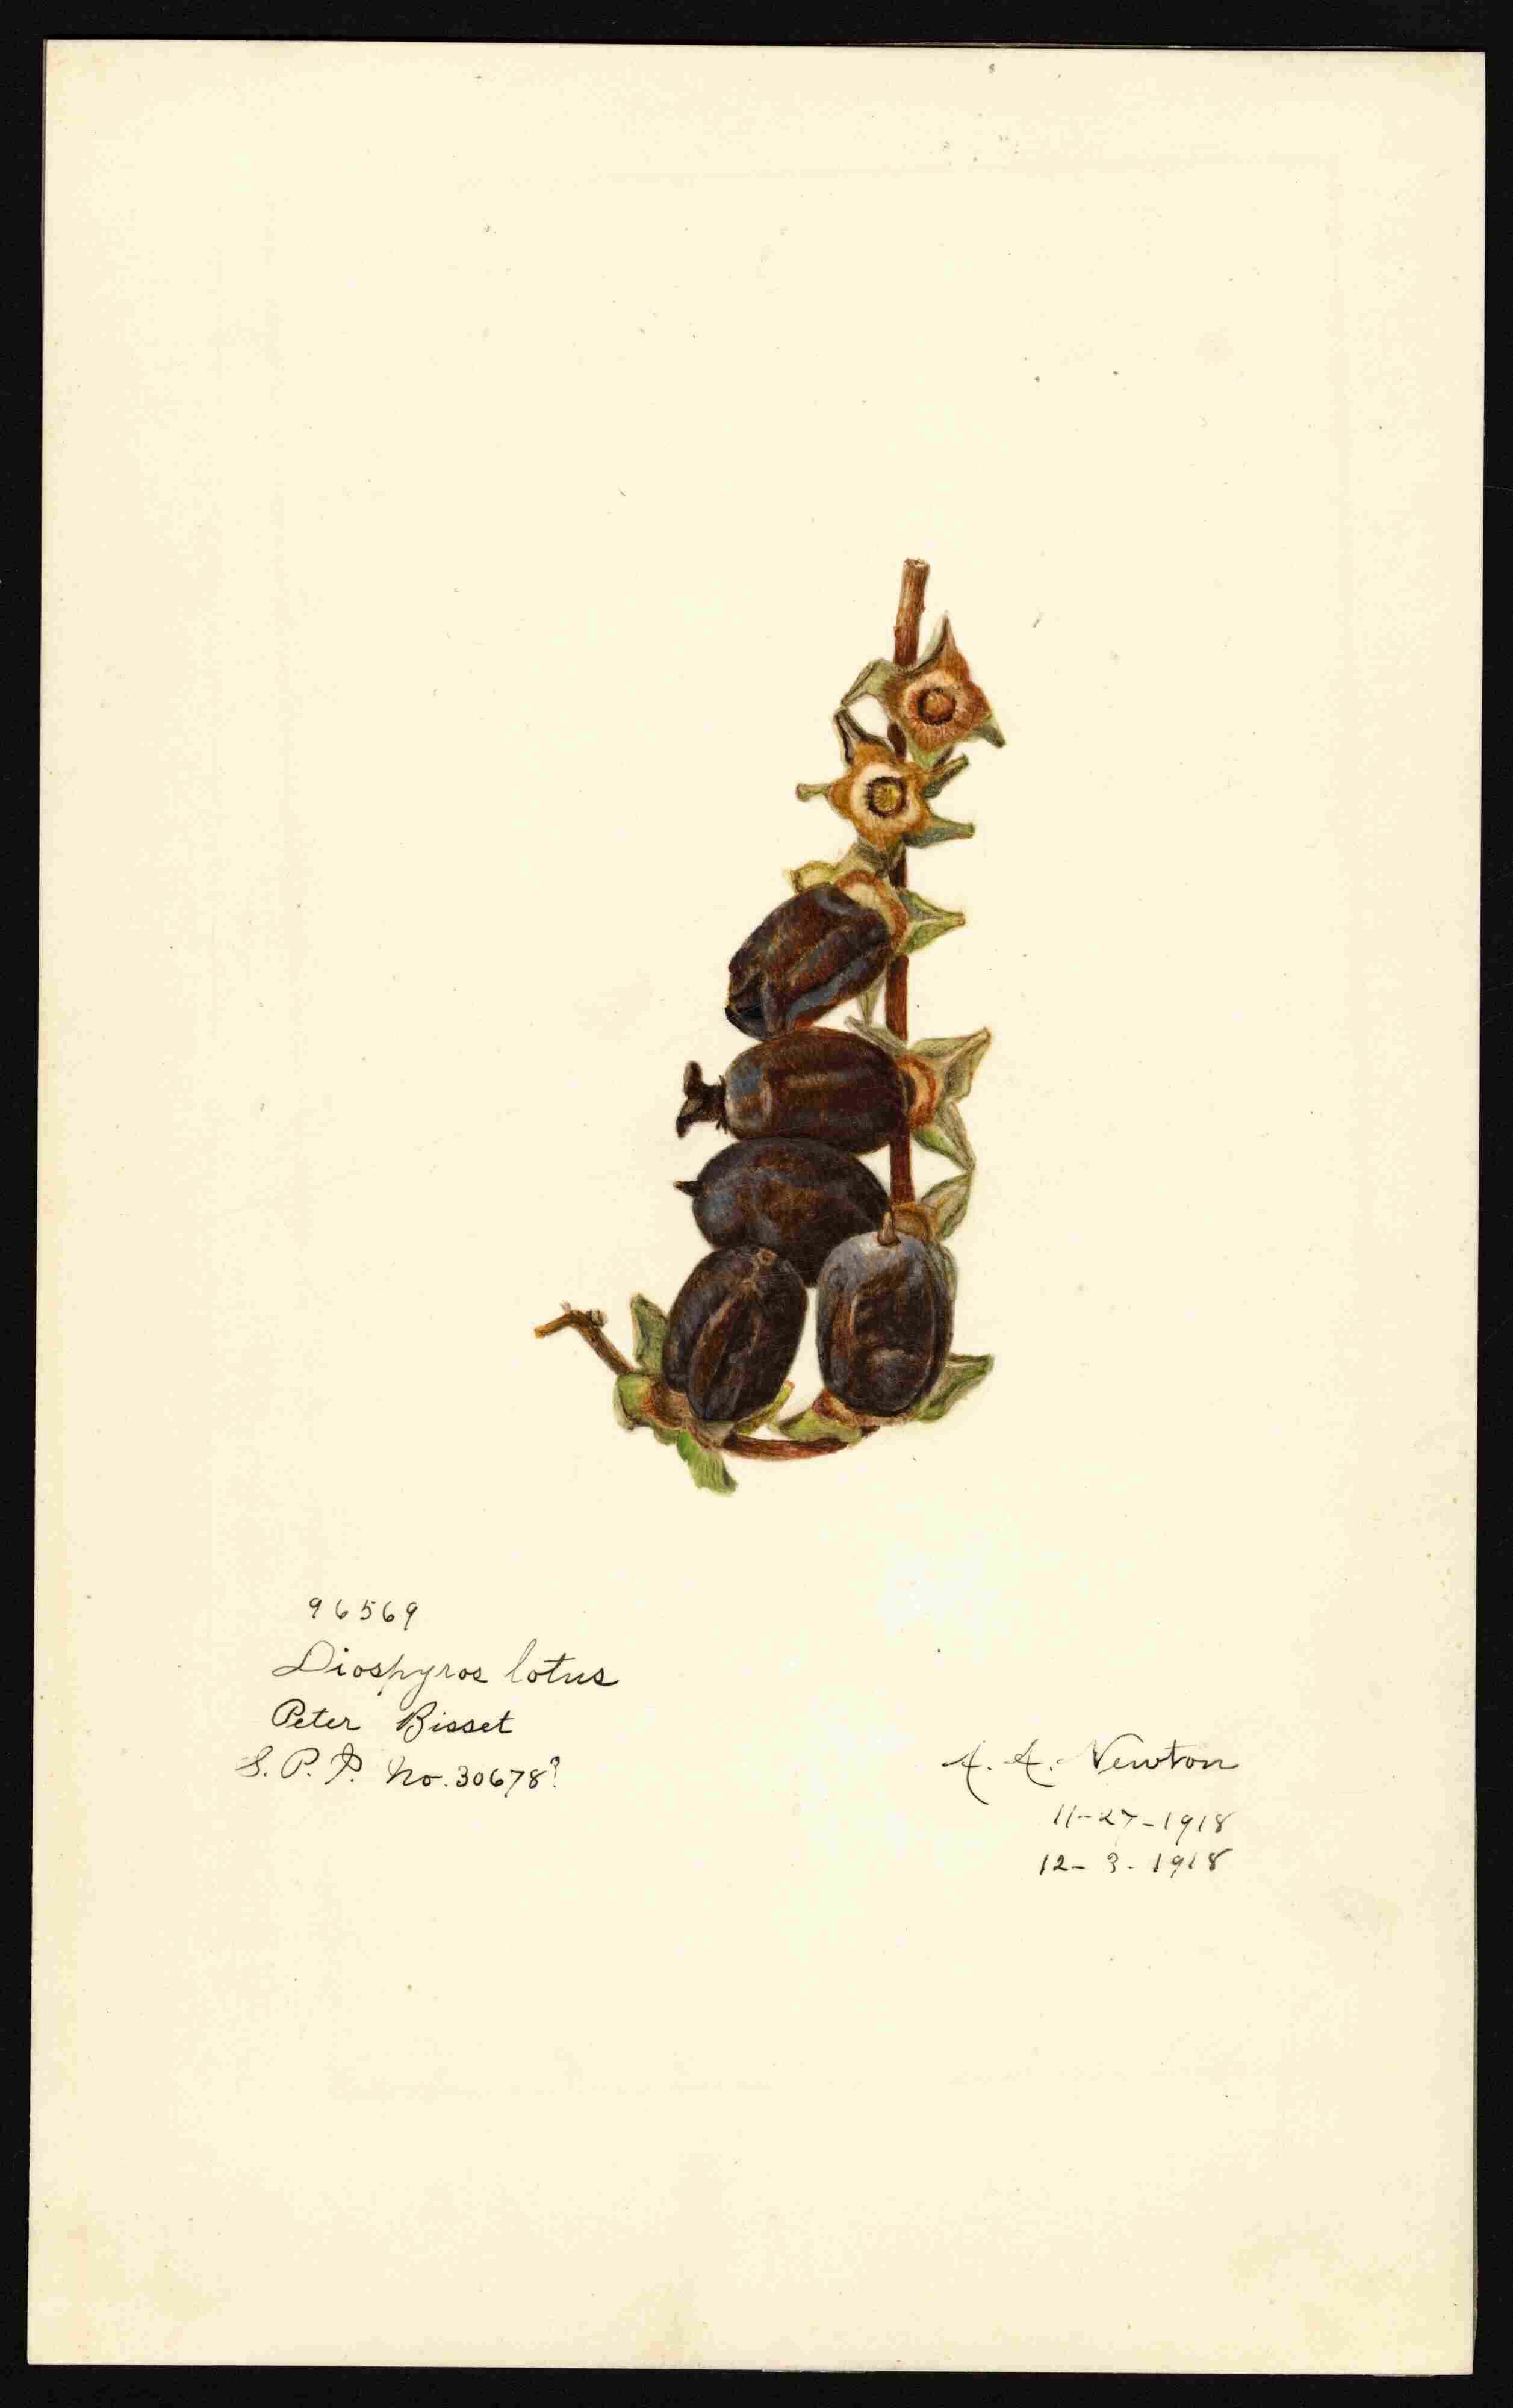 96569
Diospyros lotus
Peter Bisset
S. P. I. No. 30678?
A. A. Newton
11-27-1918
12-3-1918